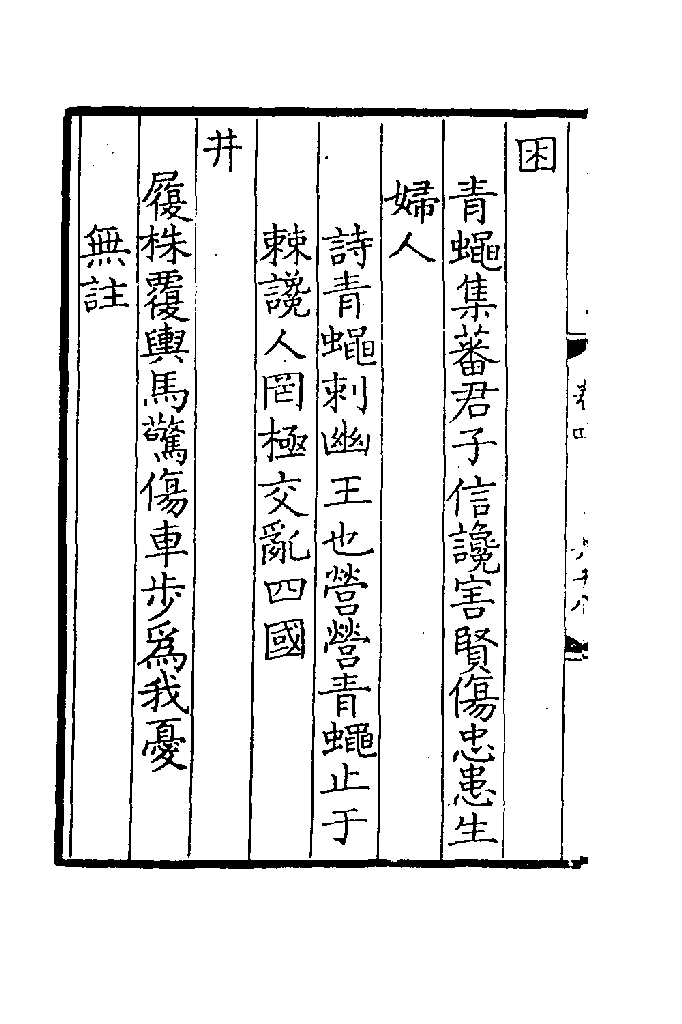 困
青蠅集蕃君子信讒害賢傷忠患生
婦人
詩青蠅刺幽王也營營青蠅止于
棘讒人罔極交亂四國
井
履株覆輿馬驚傷車步為我憂
無註